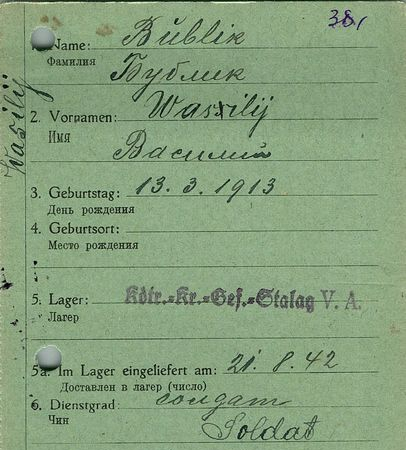 38,
1. Name: Bŭblik
Фамилия Бублик
2. Vornamen: Wassilij
Имя
Василий
Wasilij
3. Geburtstag: 13. 3. 1913
День рождения
4. Geburtsort:
Место рождения
5. Lager: Kdtr.=Kr.=Gef.=Stalag V. A.
Лагер
5a. Im Lager eingeliefert am: 21. 8. 42
Доставлен в лагер (число)
6. Dienstgrad: солдат
Чин
Soldat